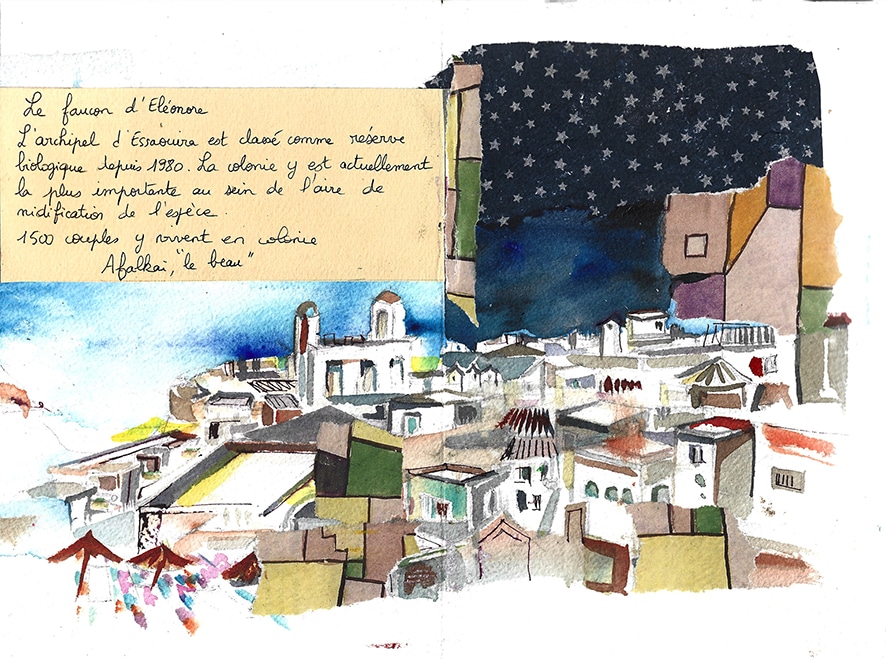 Le faucon d'Eléonore
L'archipel d'Essaouira est classé comme réserve
biologique depuis 1980. La colonie y est actuellement
la plus importante au sein de l'aire de
nidification de l'espèce.
1500 couples y vivent en colonie
Afalkai, "le beau"